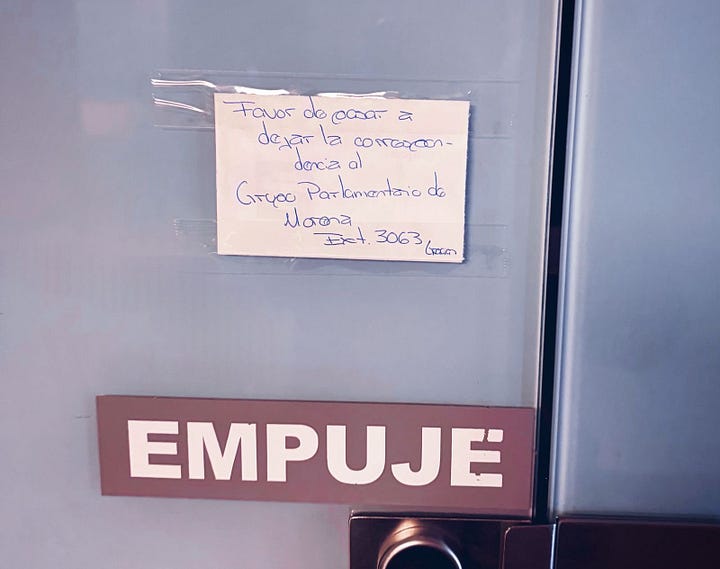 Favor de pasar a
dejar la correspon-
dencia al
Grupo Parlamentario de
Morena
Ext. 3063
EMPUJE